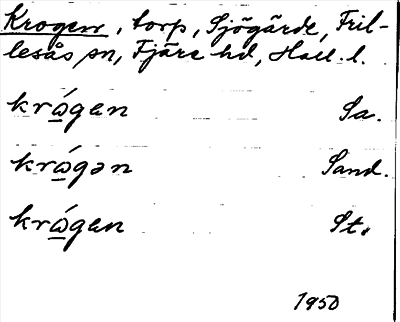 Krogen, torp, Sjögärde, Fril-
lesås sn, Fjäre hd, Hall. l.
krώ̲gen Sa.
krώ̲gən Sand.
krώ̲gen St.
1950